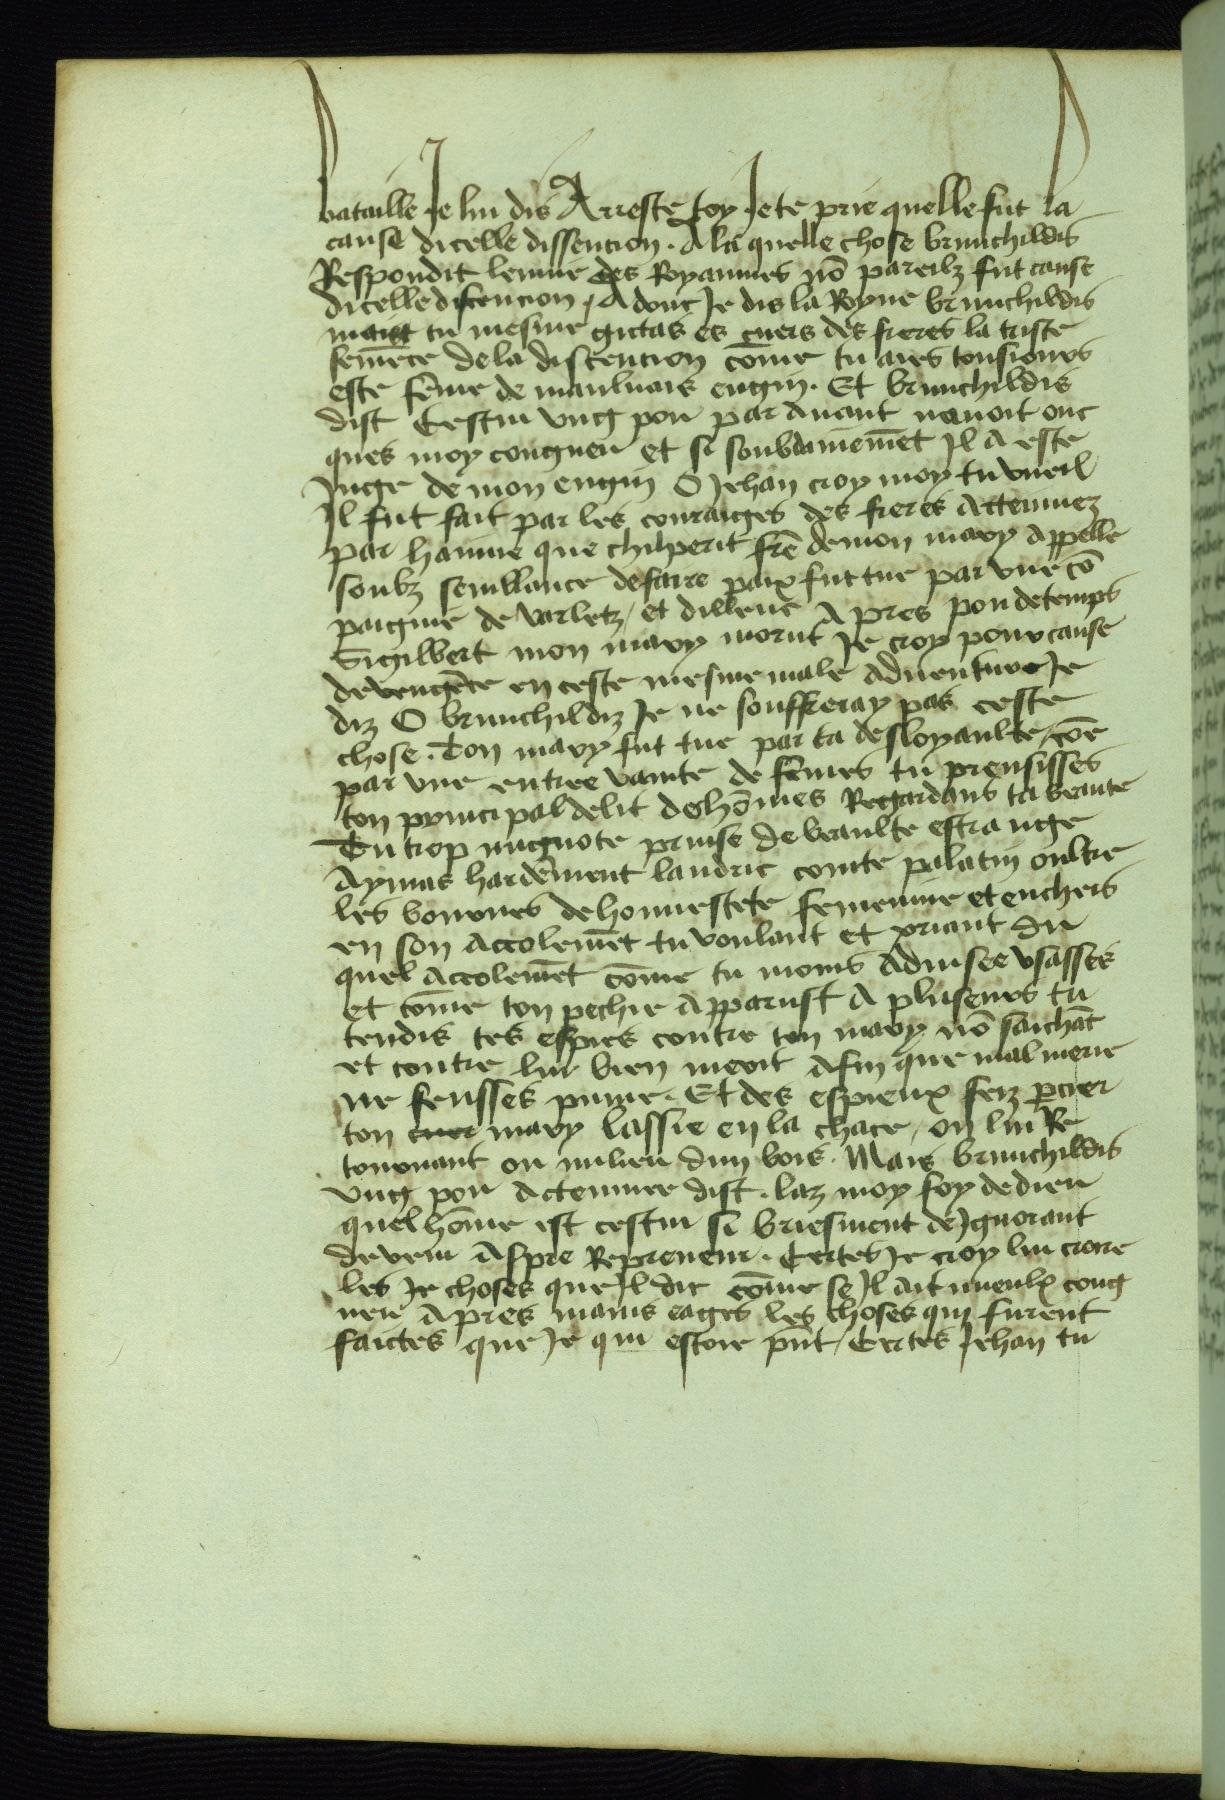 bataille Je lui dis Arreste toy Je te prie quelle fut la
cause dicelle dissencion . A la quelle chose brunchildis
Respondit lenuie des Royaumes nō pareilz fut cause
dicelle discencion / A donc Je dis la Royne brunchildis
mais tu mesme gictas es cuers des freres la triste
semēce de la discencion cōme tu aies tousiours
este fēme de mauluais engin . Et brunchildis
dist Cestui vng pou par auant nauoit onc
ques moy congneu et si soubdainemēt Il a este
Juge de mon engin O Jehan croy moy tu vueil
Il fut fait par les couraiges des freres Attennez
par hainne que chilperit frē de mon mary Appelle
soubz semblance de faire paix fut tue par vne cō
paignie de varletz / et dillenc A pres pou de temps
Sigilbert mon mary morut Je croy pour cause
de vengēce en ceste mesme male aduenture Je
diz O brunchildiz Je ne souffreray pas ceste
chose . Ton mary fut tue par ta desloyaulte / cōe
par vne entree vainte de fēmes tu prensisses
ton principal delit des hōmes Regardans ta beaute
Tu trop mignote prinse de beaulte estrange
Aymas hardēment landric conte palatin oultre
les bonnes de honnestete femenine et encheis
en son accolemēt tu voulant et priant du
quel accolemēt cōme tu moins aduisee vsasses
et cōme ton pechie apparust A pluseurs tu
tendis tes espies contre ton mary nō saichāt
et contre lui bien merit afin que mal merie
ne feusses punie . Et des espieux feiz pcier
ton cuer mary lassie en la chace / ou lui Re
tournant ou milieu dun bois . Mais brunchildis
vng pou actennee dist . laz moy foy de dieu
quel hōme est cestui si briefment de Jgnorant
deuenu Aspre Repreneur . Certes Je croy lui croire
les Je choses que Il dit cōme se Il ait mieulx cong
neu A pres mains eages les choses qui furent
faictes que Je qui estoie pnt / Certes Jehan tu